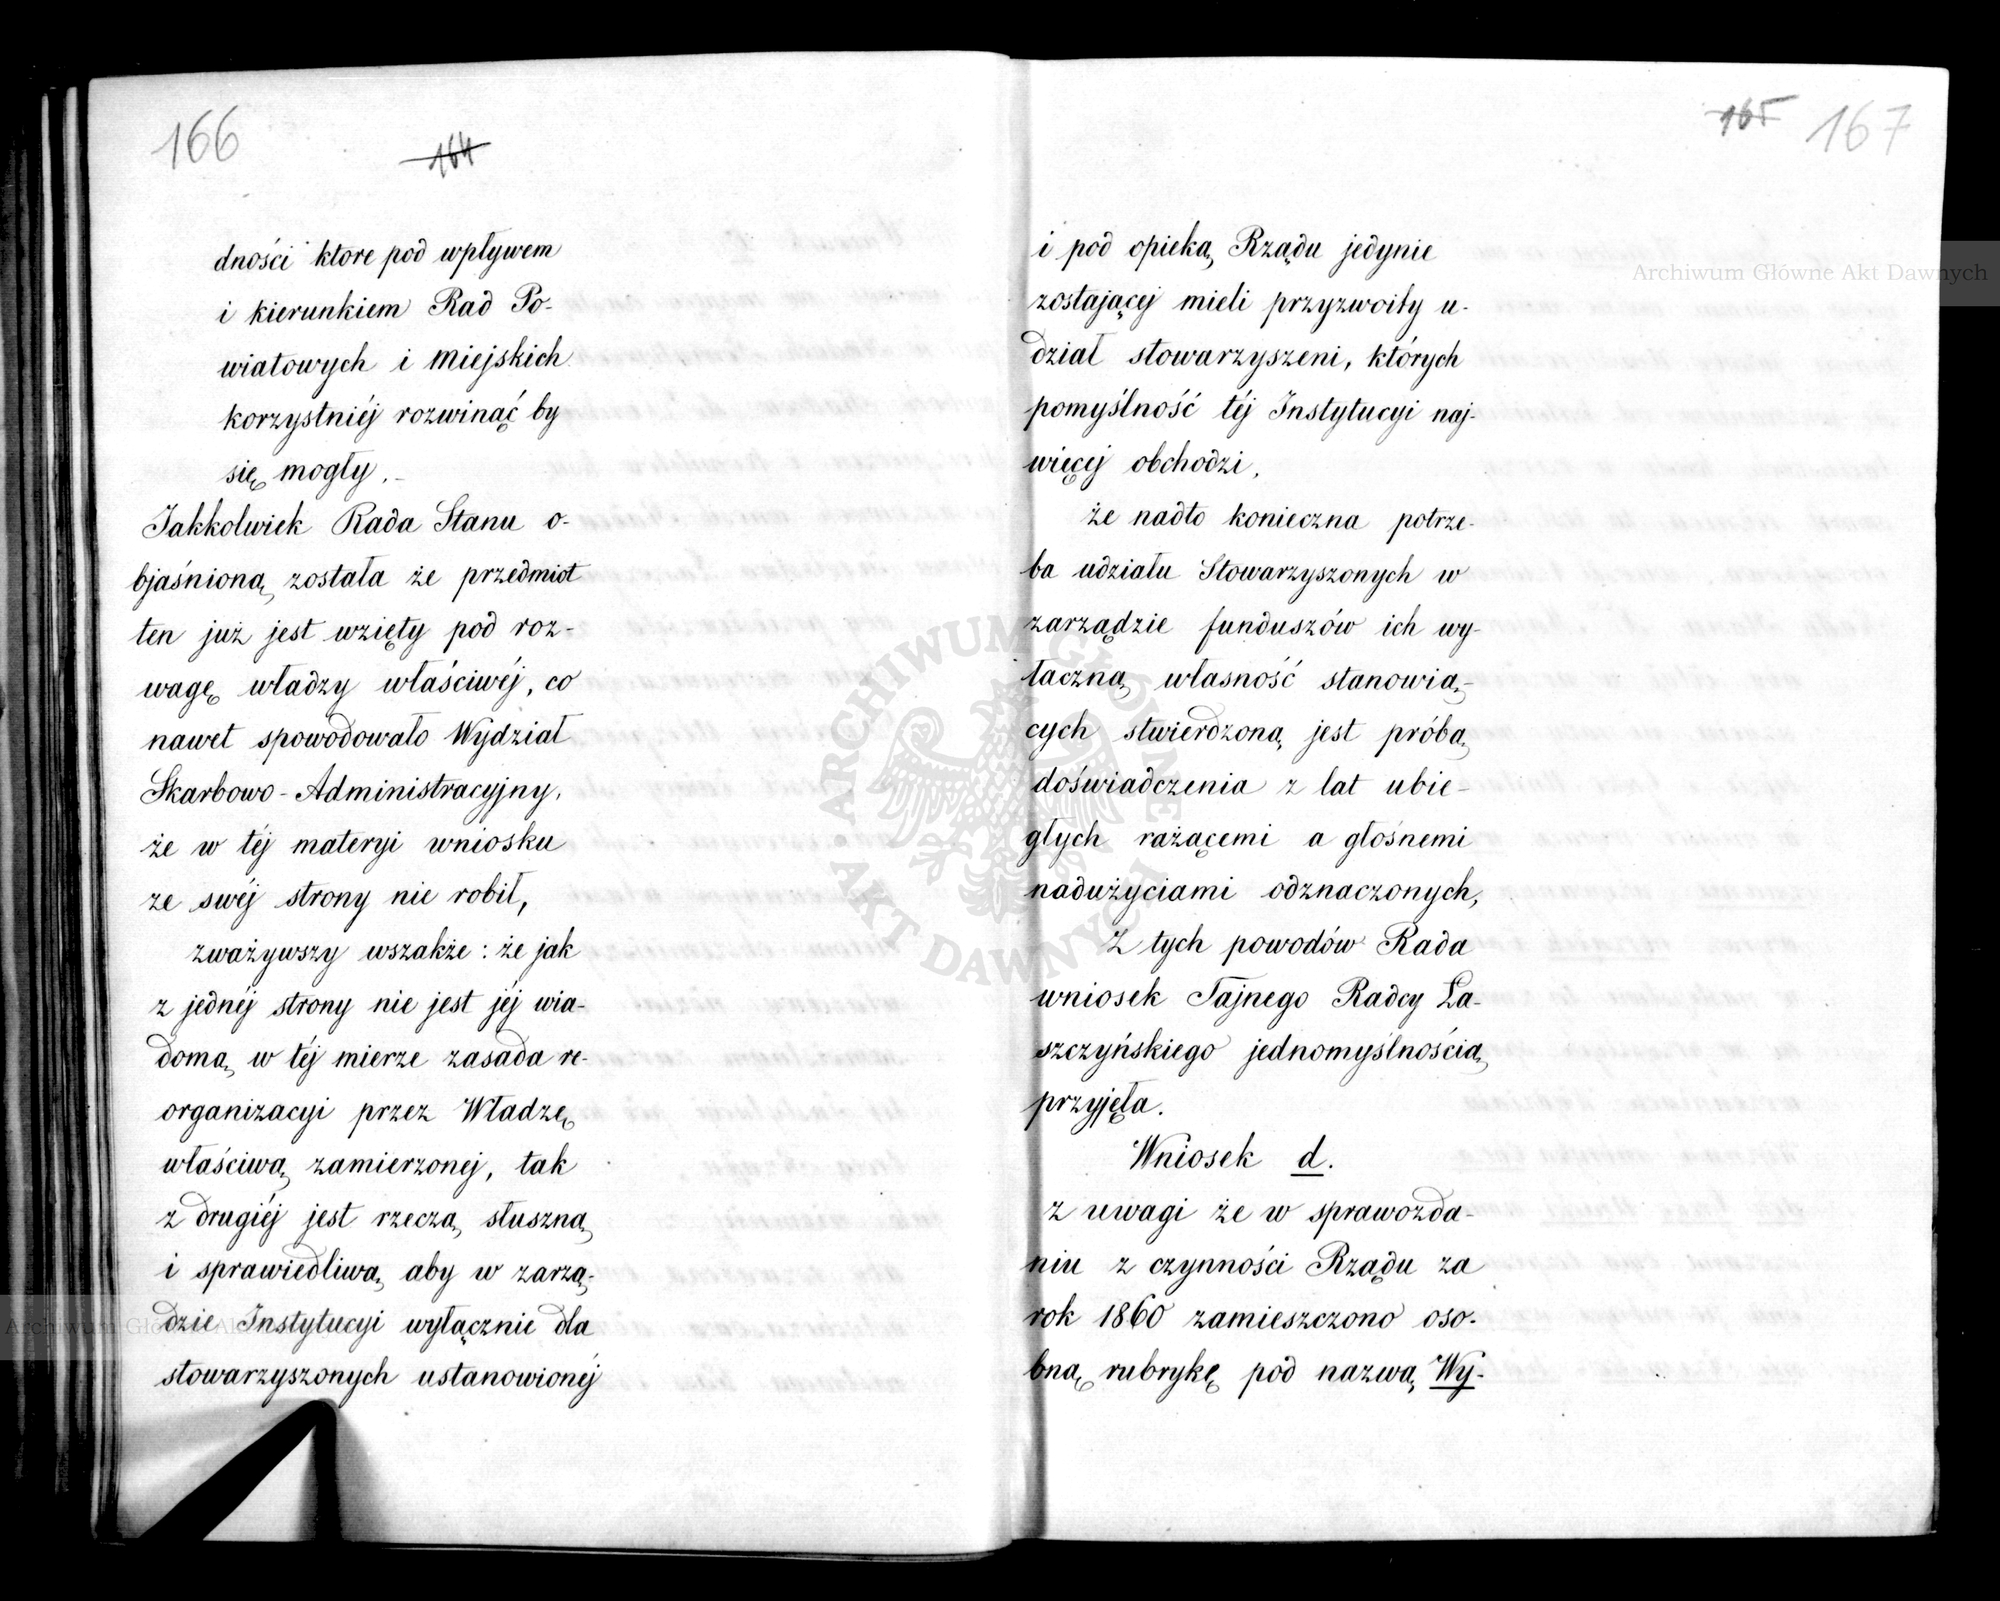 166
164
dności ktore pod wpływem
i kierunkiem Rad Po-
wiatowych i Miejskich
korzystniéj rozwinąć by
się mogły.-
Jakkolwiek Rada Stanu o-
bjaśnioną została że przedmiot
ten już jest wzięty pod roz-
wagę władzy właściwéj, co
nawet spowodowało Wydział
Skarbowo-Administracyjny,
że w téj materyi wniosku
ze swéj strony nie robił,
zważywszy wszakże: że jak
z jednéj strony nie jest jéj wia-
domą w téj mierze zasada re-
organizacyi przez Władzę
właściwą zamierzonej, tak
z drugiéj jest rzeczą słuszną
i sprawiedliwą aby w zarzą-
dzie Instytucyi wyłącznie dla
stowarzyszonych ustanowionéj
165 167
i pod opieką Rządu jedynie
zostającej mieli przyzwoity u-
dział stowarzyszeni, których
pomyślność téj Instytucyi naj-
więcej obchodzi,
że nadto konieczna potrze-
ba udziału Stowarzyszonych w
zarządzie funduszów ich wy-
łaczną własność stanowią-
cych stwierdzoną jest próbą
doświadczenia z lat ubie-
głych rażącemi a głośnemi
nadużyciami odznaczonych,
Z tych powodów Rada
wniosek Tajnego Radcy Ła-
szczyńskiego jednomyślnością
przyjęła.
Wniosek d.
z uwagi że w sprawozda-
niu z czynności Rządu za
rok 1860 zamieszczono oso-
bną rubrykę pod nazwą Wy-
Archiwum Główne Akt Dawnych
ARCHIWUM GŁÓWNE
AKT DAWNYCH